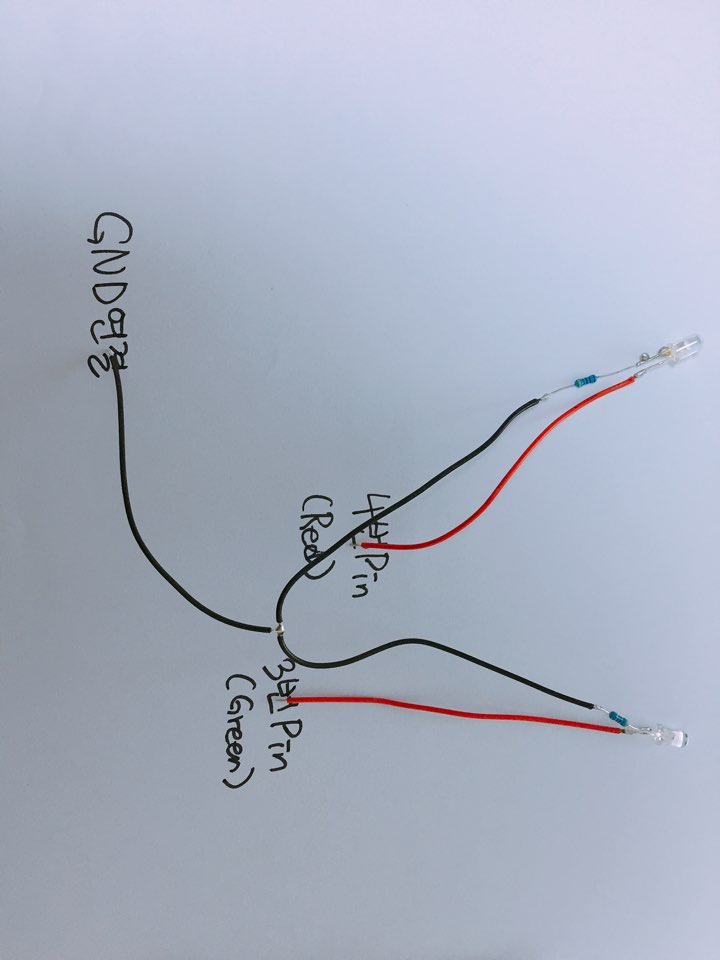 GND연결
4번 Pin
(Red)
3번 Pin
(Green)